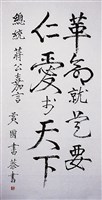 革命就是要
仁愛於天下
總統 蔣公嘉言
黃國書恭書